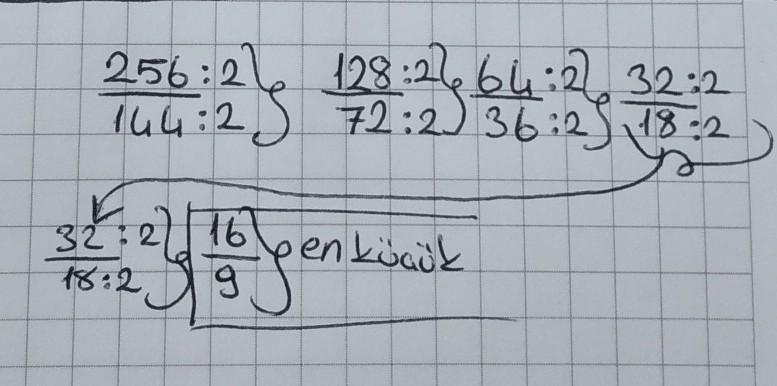 256:2 128:2 64:2 32:2
144:2 72:2 36:2 18:2
32:2 16 en küçük
18:2 9